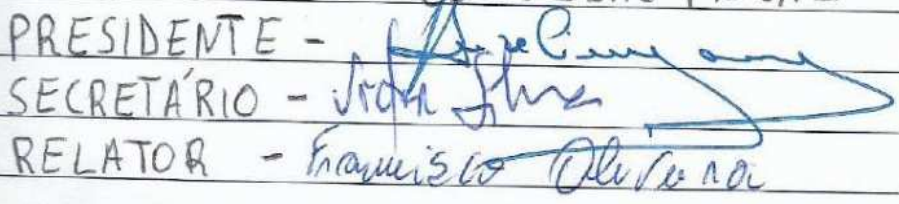 PRESIDENTE -
SECRETÁRIO - Victor Silva
RELATOR - Francisco Oliveira